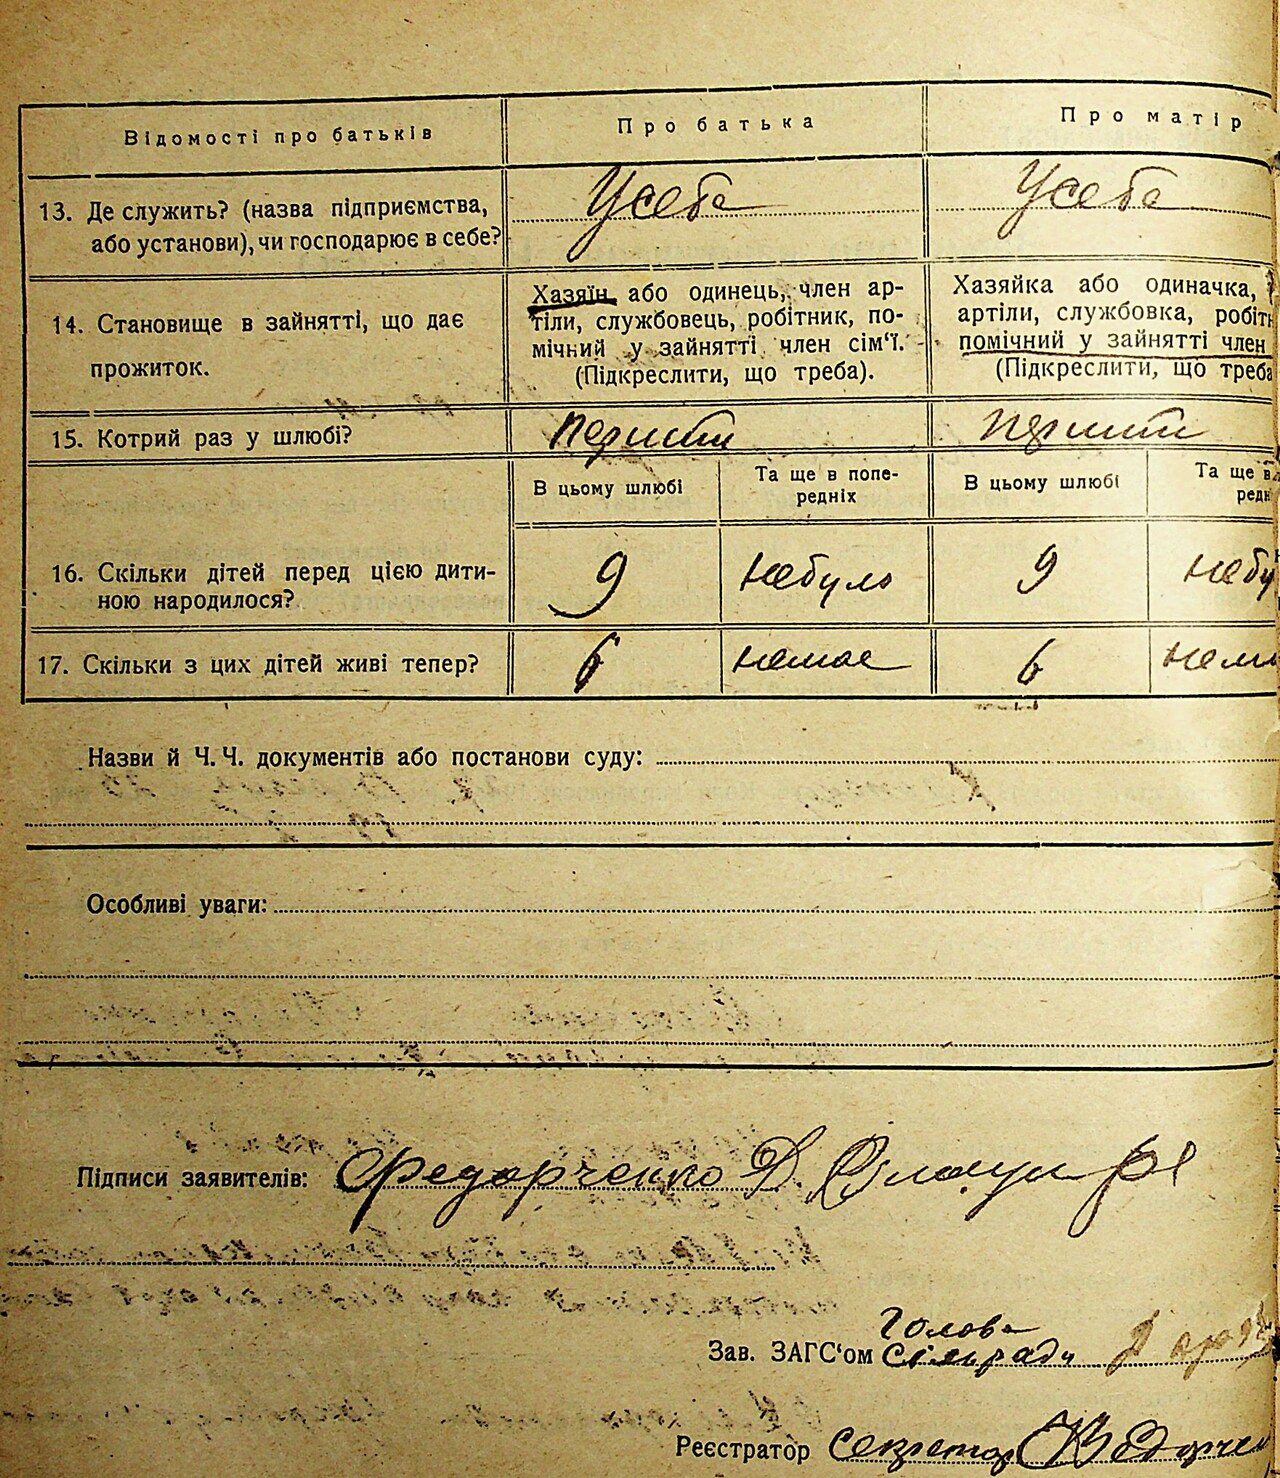 Відомості про батьків
Про батька
Про матір
13. Де служить? (назва підприємства, або установи), чи господарює в себе?
Усебе
Усебе
14. Становище в зайнятті, що дає прожиток.
Хазяїн або одинець, член ар-
тіли, службовець, робітник, по-
мічний у зайнятті член сім'ї.
(Підкреслити, що треба).
Хазяйка або одиначка,
артіли, службовка, робіт
помічний у зайнятті член
(Підкреслити, що треба
15. Котрий раз у шлюбі?
перший
перший
В цьому шлюбі
Та ще в попе-
редніх
В цьому шлюбі
Та ще в
редн
16. Скільки дітей перед цією дити-
ною народилося?
9
небуло
9
небу
17. Скільки з цих дітей живі тепер?
6
немає
6
нема
Назви й Ч. Ч. документів або постанови суду:
Особливі уваги:
Підписи заявителів: Федорченко Д.
Голова
Зав. ЗАГС'ом сільради
Реєстратор секретар